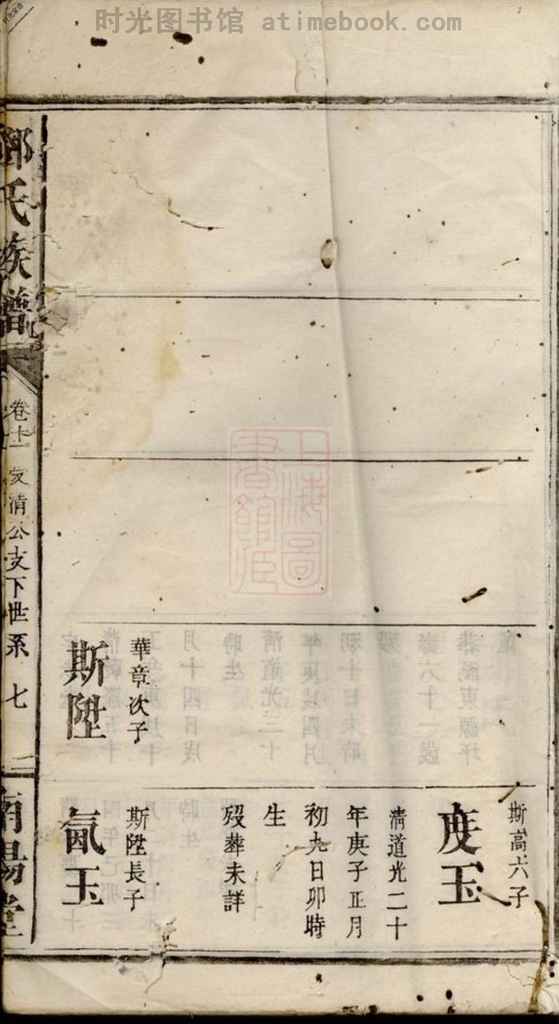 时光图书馆 atimebook.com
上海圖
書館藏
華章次子
斯陞
斯高六子
度玉
清道光二十
年庚子正月
初九日卯時
生
歿葬未詳
斯陞長子
氤玉
鄧氏族譜
卷十一 友清公支下世系 七
南陽堂